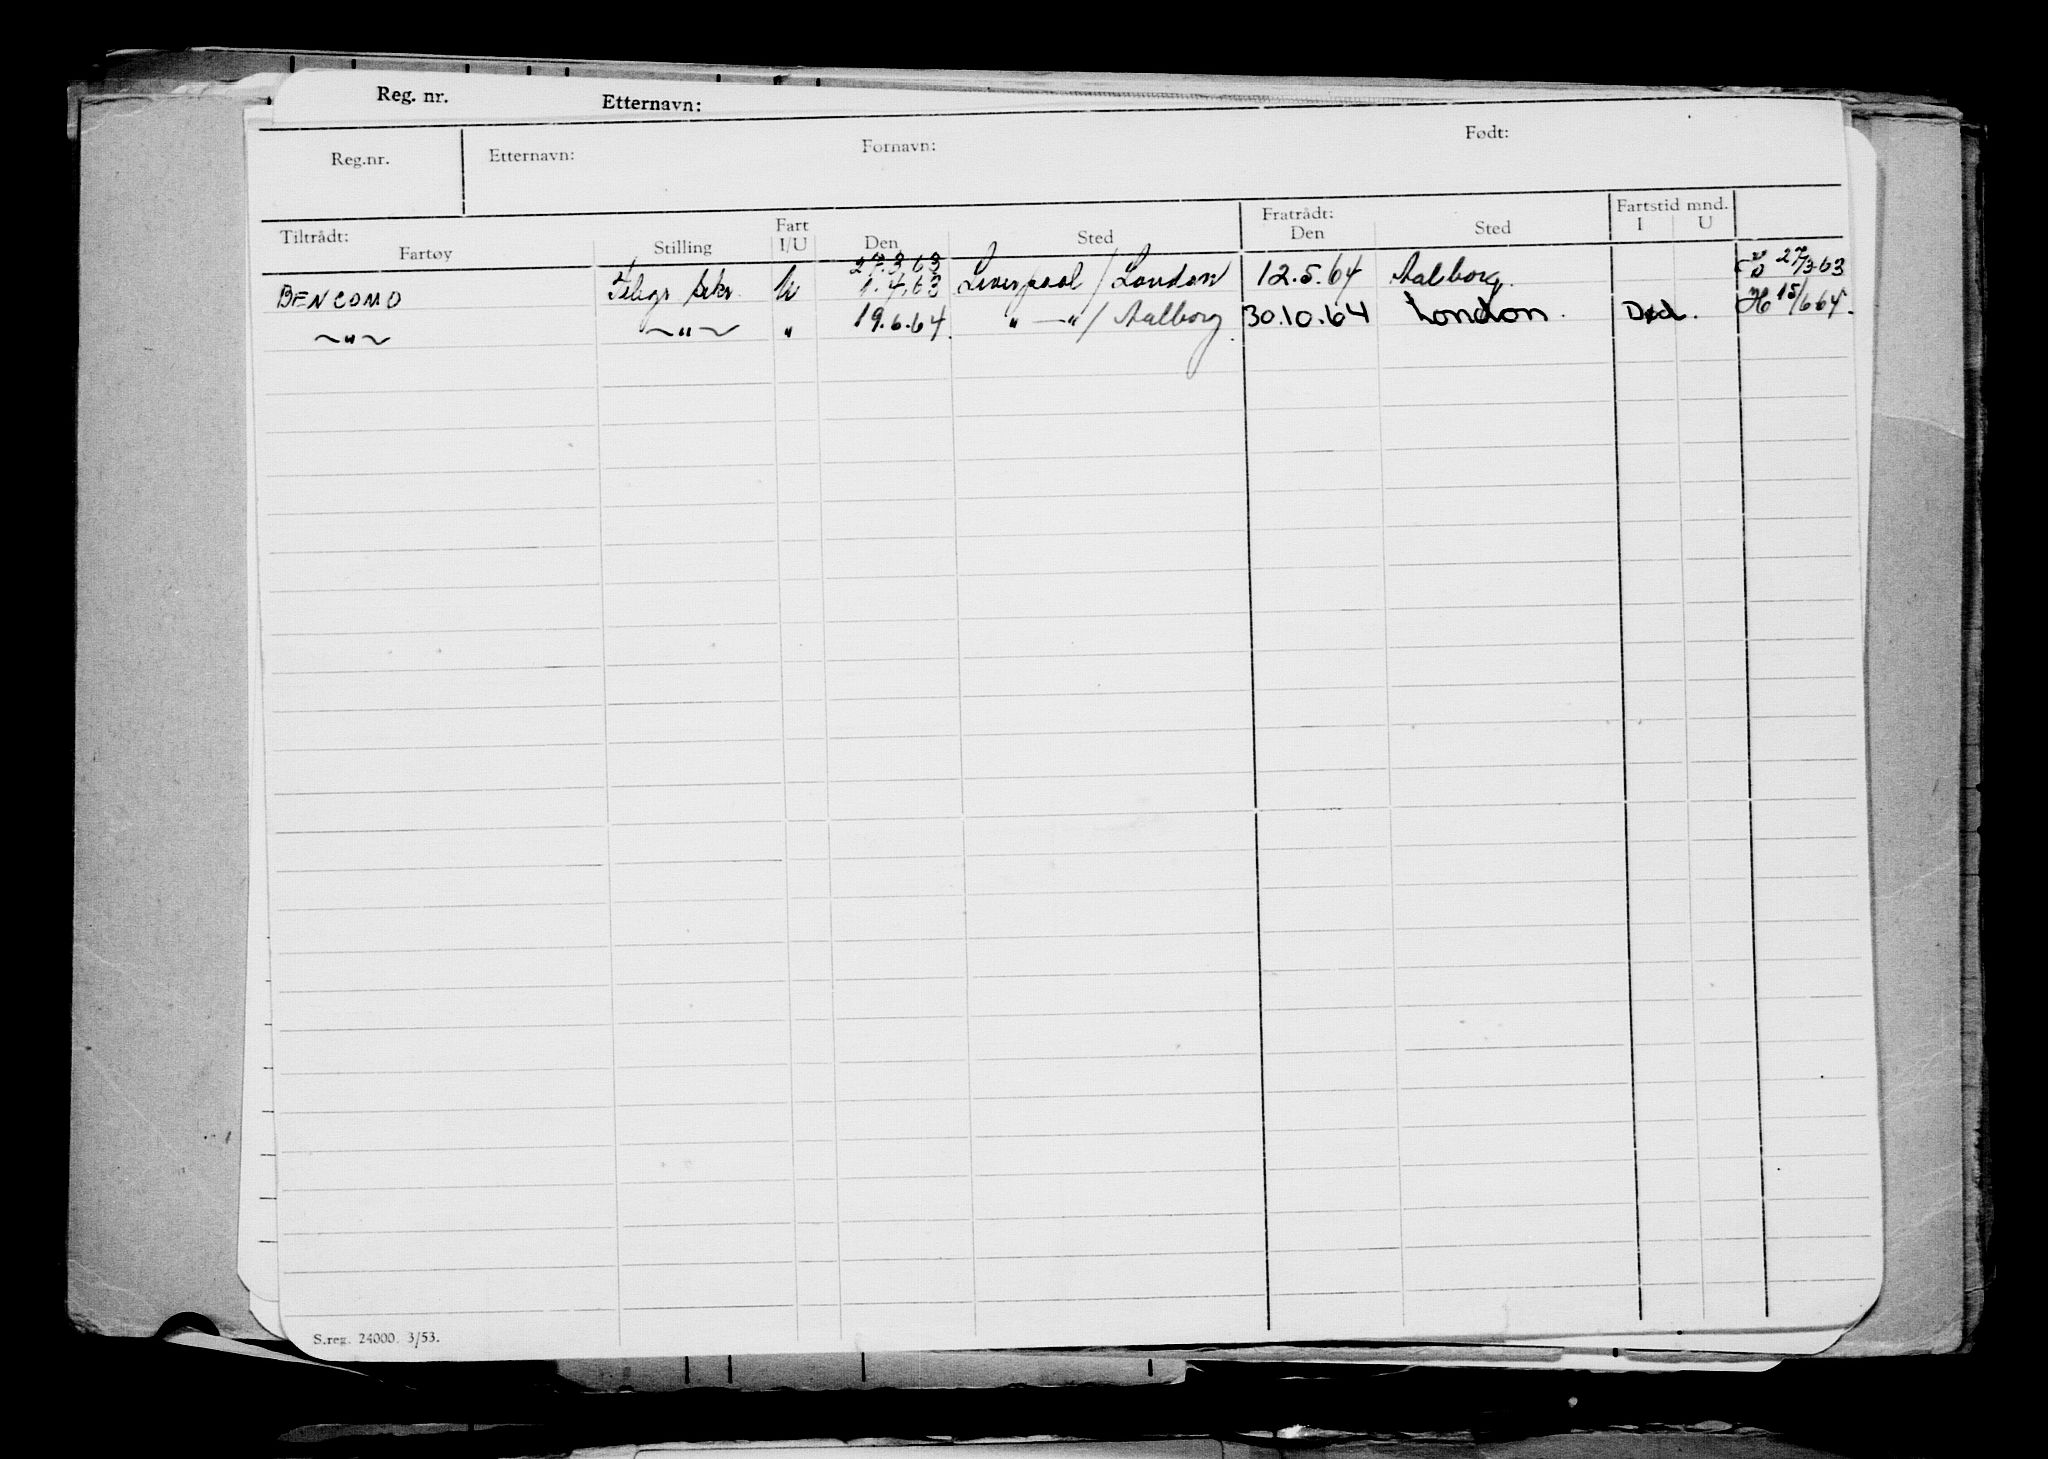 Reg. nr. Etternavn:
Reg.nr. Etternavn: Fornavn: Født:
Tiltrådt: Fart Fratrådt: Fartstid mnd.
Fartøy Stilling I/U Den Sted Den Sted I U
27.3.63
BENCOMO Telegr. sekr. U 1.4.63 Liverpool / London 12.5.64 Aalborg. 27/3-63
~"~ ~"~ " 19.6.64. " —"/ Aalborg. 30.10.64 London. Død. 15/6 64.
S.reg. 24000. 3/53.